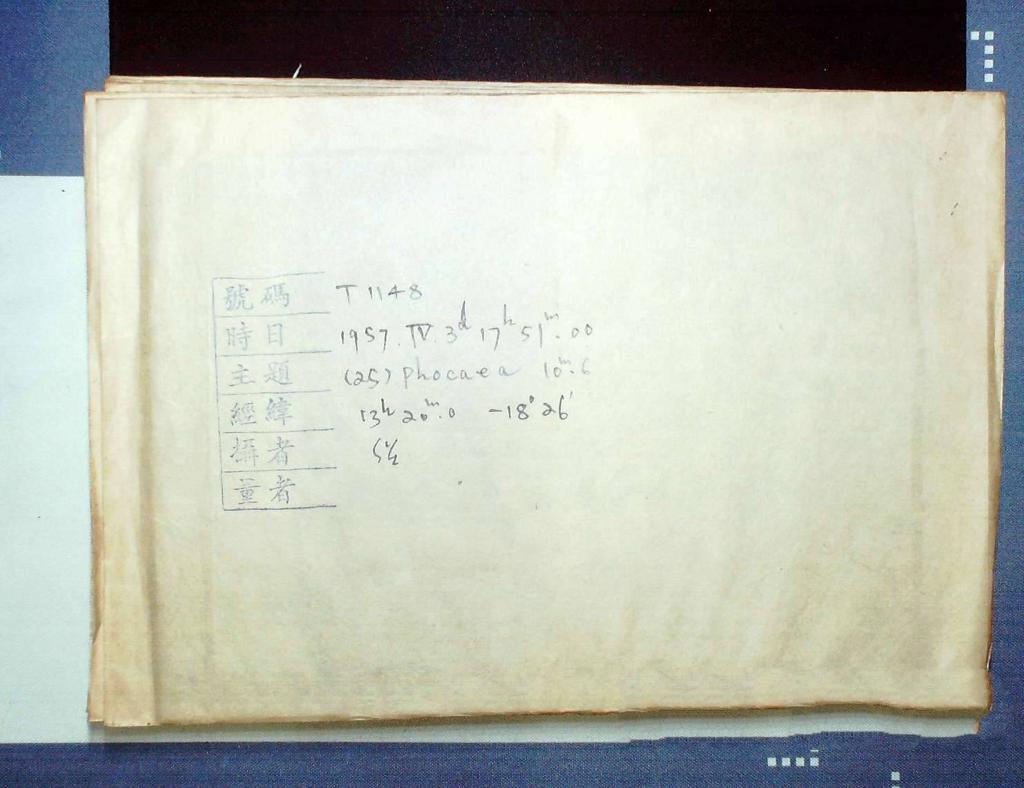 號碼 T 1148
時日 1957. IV. 3ᵈ 17ʰ 51ᵐ.00
主題 (25) Phocaea 10ᵐ.6
經緯 13ʰ 20ᵐ.0 -18°26′
攝者
量者